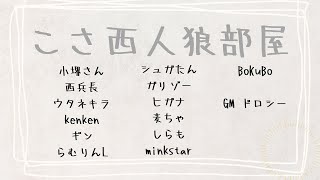 こさ西人狼部屋
小塚さん
西兵長
ウタネキラ
kenken
ギン
らむりんL
シュガたん
ガリゾー
ヒガナ
麦ちゃ
しらも
minkstar
BoKuBo
GM ドロシー